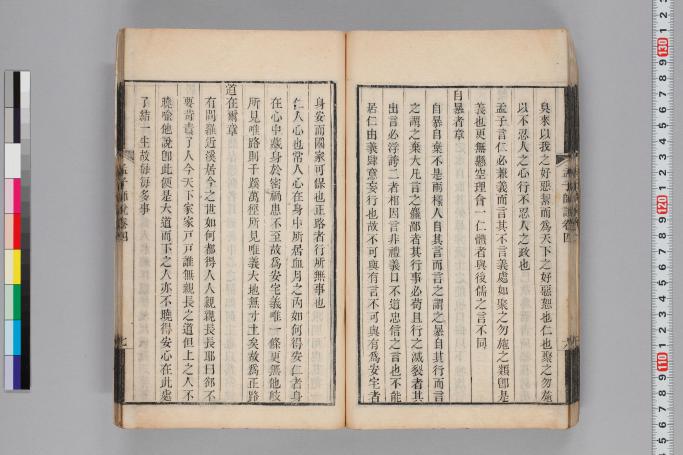 臭來以我之好惡絜而爲天下之好惡恕也仁也聚之勿施
以不忍人之心行不忍人之政也
孟子言仁必兼義而言其不言義處如聚之勿施之類卽是
義也更無懸空理會一仁體者與後儒之言不同
自暴者章
自暴自棄不是兩樣人自其言而言之謂之暴自其行而言
之謂之棄大凡言之麤鄙者其行事必苟且行之滅裂者其
出言必浮誇二者相因言非禮義口不道忠信之言也不能
居仁由義肆意妄行也故不可與有言不可與有爲安宅者
身安而國家可保也正路者行所無事也
仁人心也常人心在身中所居血肉之內如何得安仁者身
在心中藏身於密禍患不至故爲安宅義唯一條更無他岐
所見唯路則千蹊萬徑所見唯義大地無寸土矣故爲正路
道在爾章
有問羅近溪居今之世如何都得人人親親長長耶曰卻不
要苛責了人今天下家家戶戶誰無親長之道但上之人不
曉喻他說卽此便是大道而下之人亦不曉得安心在此處
了結一生故每每多事
孟子師說卷四
七